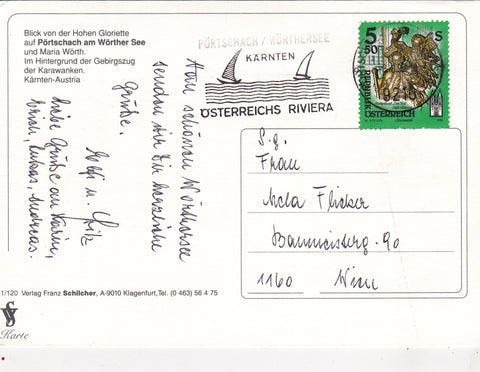 Blick von der Hohen Gloriette
auf Pörtschach am Wörther See
und Maria Wörth.
Im Hintergrund der Gebirgszug
der Karawanken.
Kärnten-Austria
PÖRTSCHACH / WÖRTHERSEE
KÄRNTEN
ÖSTERREICHS RIVIERA
5 50 S
REPUBLIK
ÖSTERREICH
schönen Wörthersee
senden wir Dir herzliche
Grüße.
u. Fritz
Liebe Grüße an Karin,
Lukas, Andreas.
S.g.
Frau
Flicker
Baumeisterg. 90
1160 Wien
1/120 Verlag Franz Schilcher, A-9010 Klagenfurt, Tel. (0 463) 56 4 75
Karte